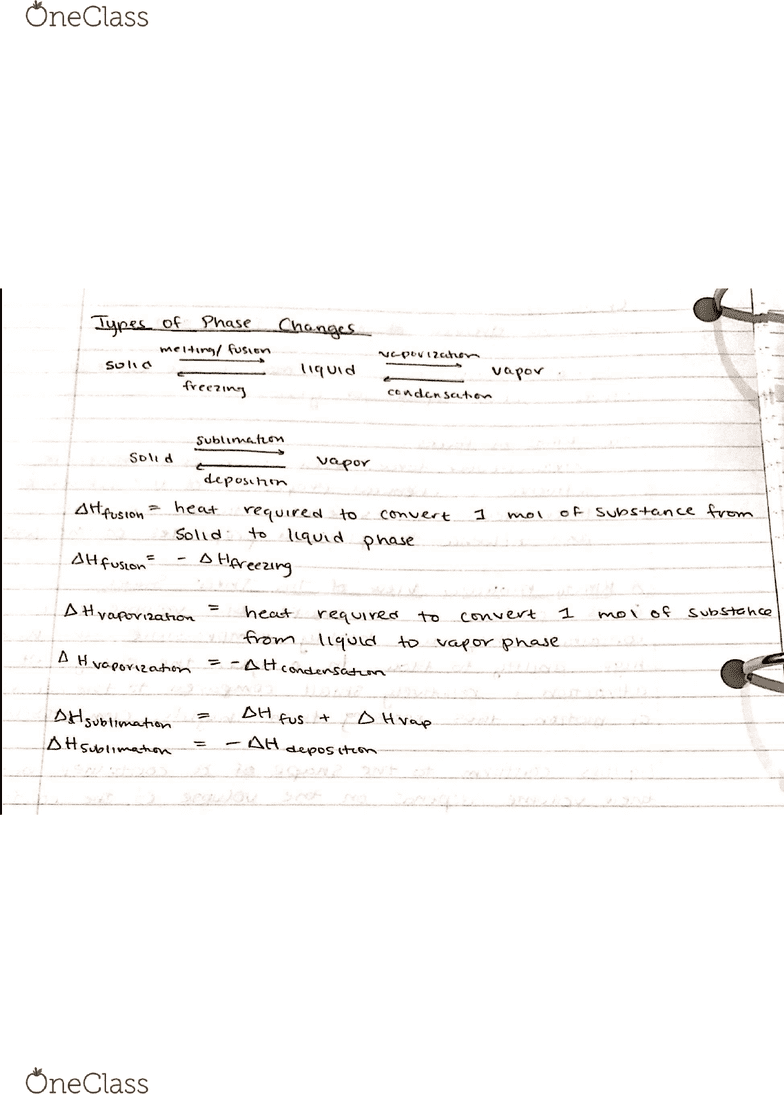 OneClass
Types of Phase Changes
melting/ fusion vaporization
solid liquid vapor
freezing condensation
sublimation
solid vapor
deposition
ΔHfusion = heat required to convert 1 mol of substance from
solid to liquid phase
ΔHfusion = - ΔHfreezing
ΔHvaporization = heat required to convert 1 mol of substance
from liquid to vapor phase
ΔHvaporization = -ΔHcondensation
ΔHsublimation = ΔHfus + ΔHvap
ΔHsublimation = -ΔH deposition
OneClass